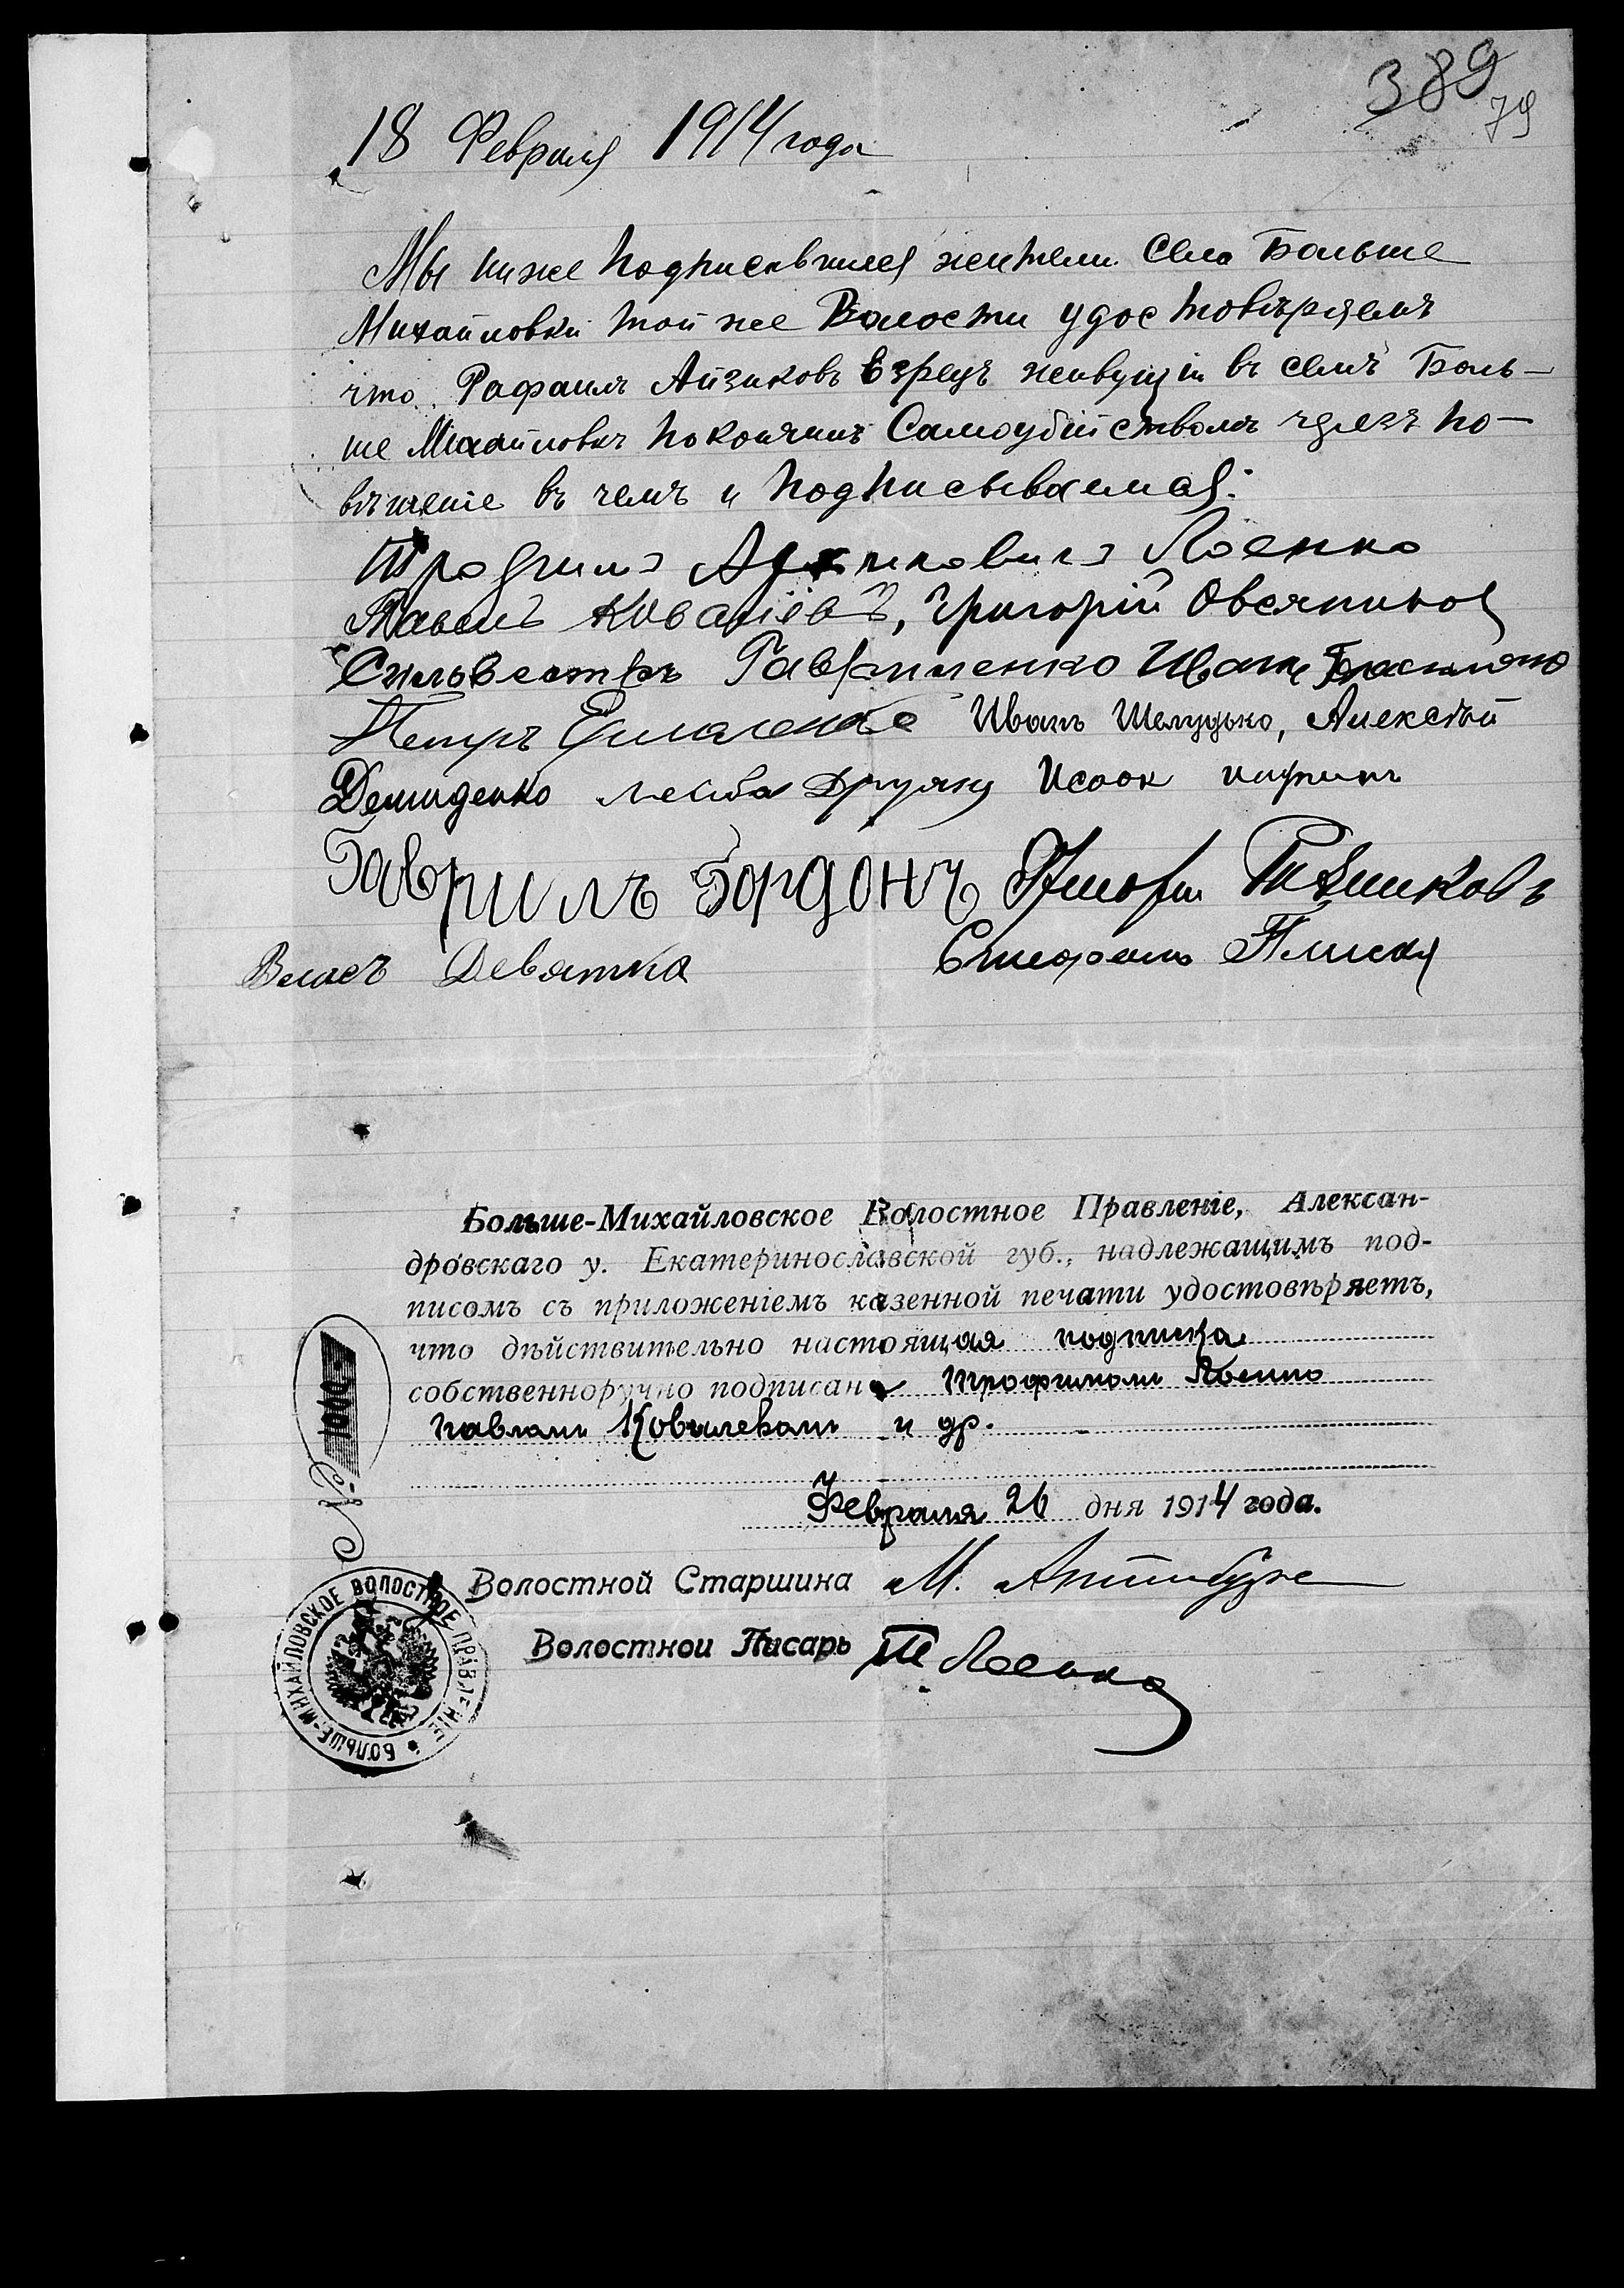 389
79
18 Февраля 1914 года
Мы ниже подписавшиеся жители Села Больше
Михайловки той же Волости удостовѣряемъ
что Рафаилъ Айзиковъ Езрецъ живущій въ селѣ Боль-
ше Михайловкѣ покончилъ Самоубійствомъ черезъ по-
вѣшеніе въ чемъ и подписываемся:
Трофимъ Лоенко
Павелъ Ковалiёвъ, Григорій Овсяников
Сильвестръ Гавриленко Иванъ
Петръ Ермоленко Иванъ Шелудько, Алексѣй
Демиденко Лейба Исоок
Гаврилъ Гордонъ Тѣшиковъ
Власъ Девятка
Стефанъ Плиская
Больше-Михайловское Волостное Правленіе, Алексан-
дровскаго у. Екатеринославской губ., надлежащимъ под-
писомъ съ приложеніемъ казенной печати удостовѣряетъ,
что дѣйствительно настоящая подписка
собственноручно подписана Трофимомъ Лоенко
Павломъ Ковалевомъ и др.
Февраля 26 дня 1914 года.
№ 1000
Волостной Старшина М.
Волостной Писарь Т Лоенко
БОЛЬШЕ-МИХАЙЛОВСКОЕ ВОЛОСТНОЕ ПРАВЛЕНІЕ